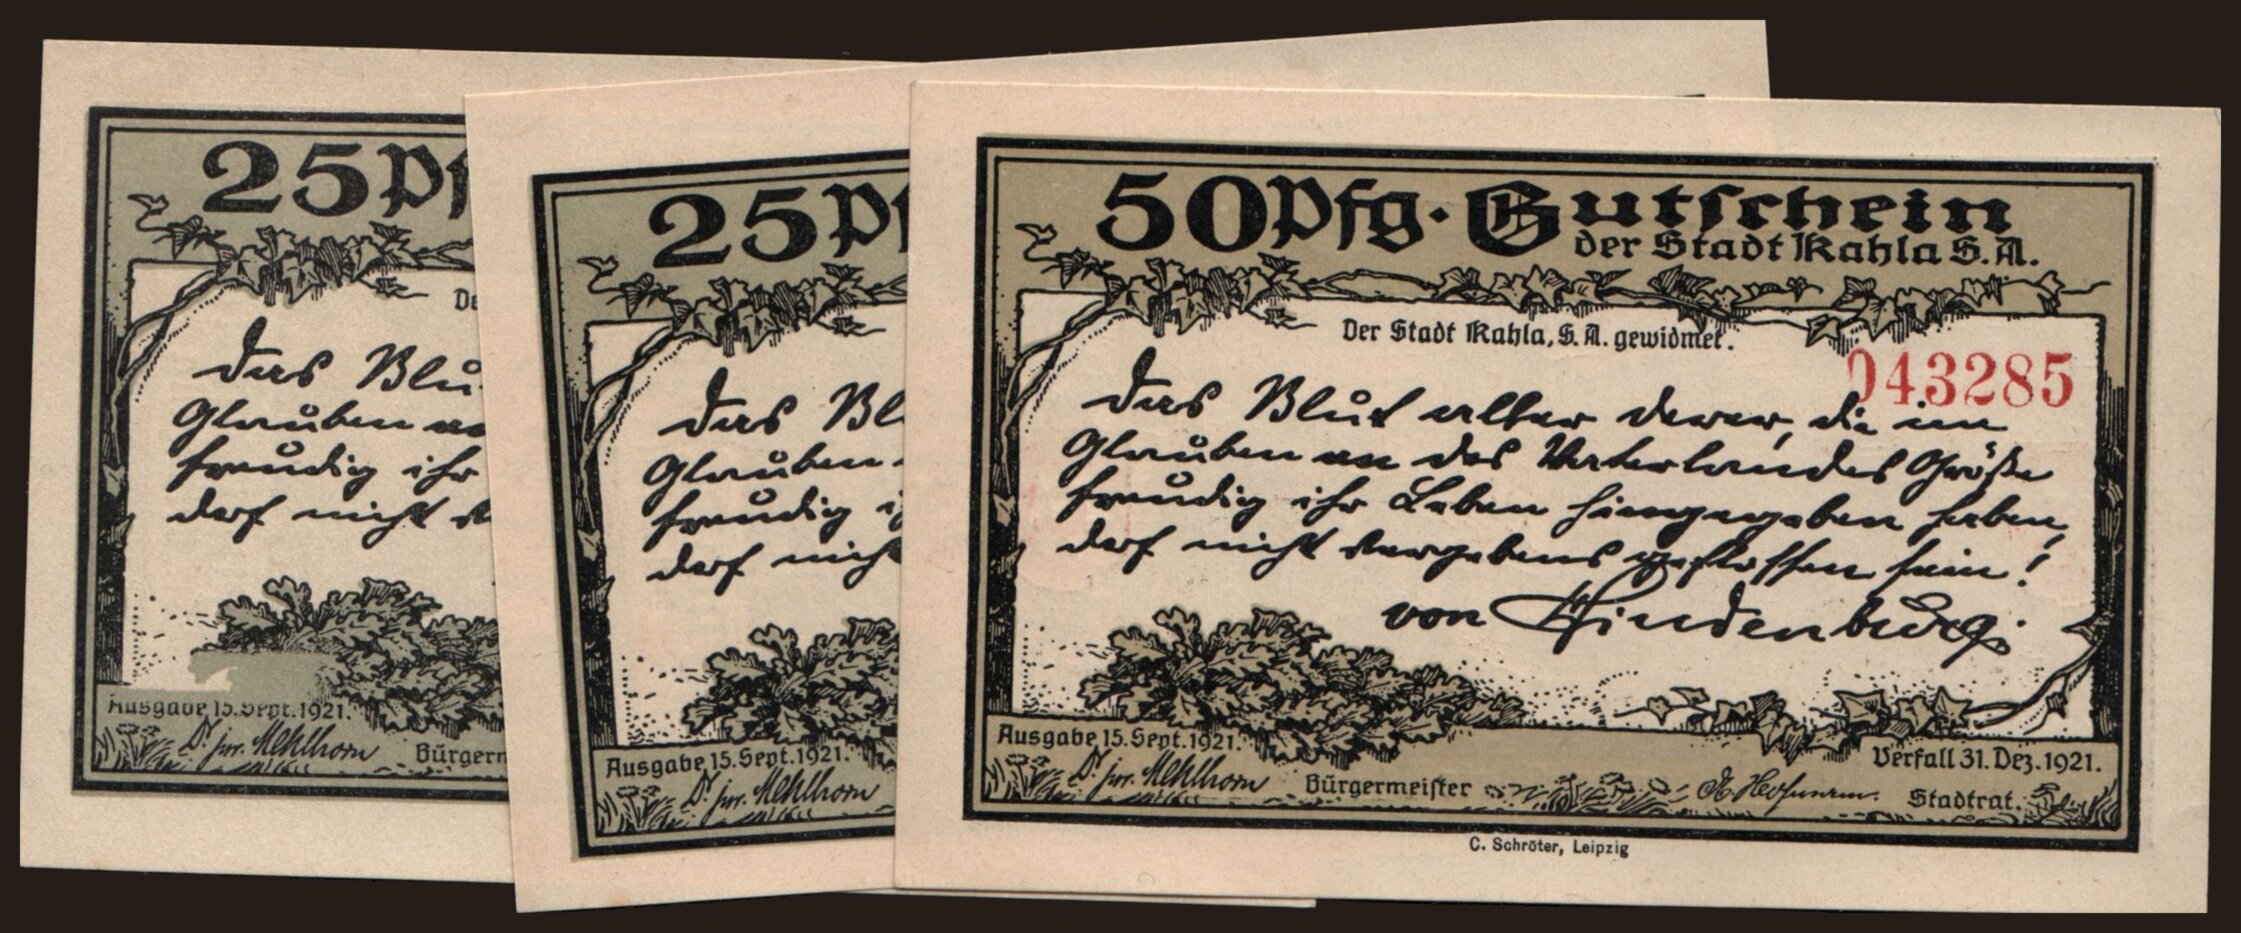 25 Pf
De
Das Blu
Glauben an
freudig ihr
darf nicht ve
Ausgabe 15. Sept. 1921.
Dr. jur. Mehlhorn Bürgerm
25 Pf
Das Bl
Glauben
freudig i
darf nich
Ausgabe 15. Sept. 1921.
Dr. jur. Mehlhorn
50 Pfg. Gutschein
der Stadt Kahla S. A.
Der Stadt Kahla, S. A. gewidmet.
043285
Das Blut aller derer, die im
Glauben an des Vaterlandes Größe
freudig ihr Leben hingegeben haben,
darf nicht vergebens geflossen sein!
von Hindenburg.
Ausgabe 15. Sept. 1921. Verfall 31. Dez. 1921.
Dr. jur. Mehlhorn Bürgermeister Stadtrat.
C. Schröter, Leipzig